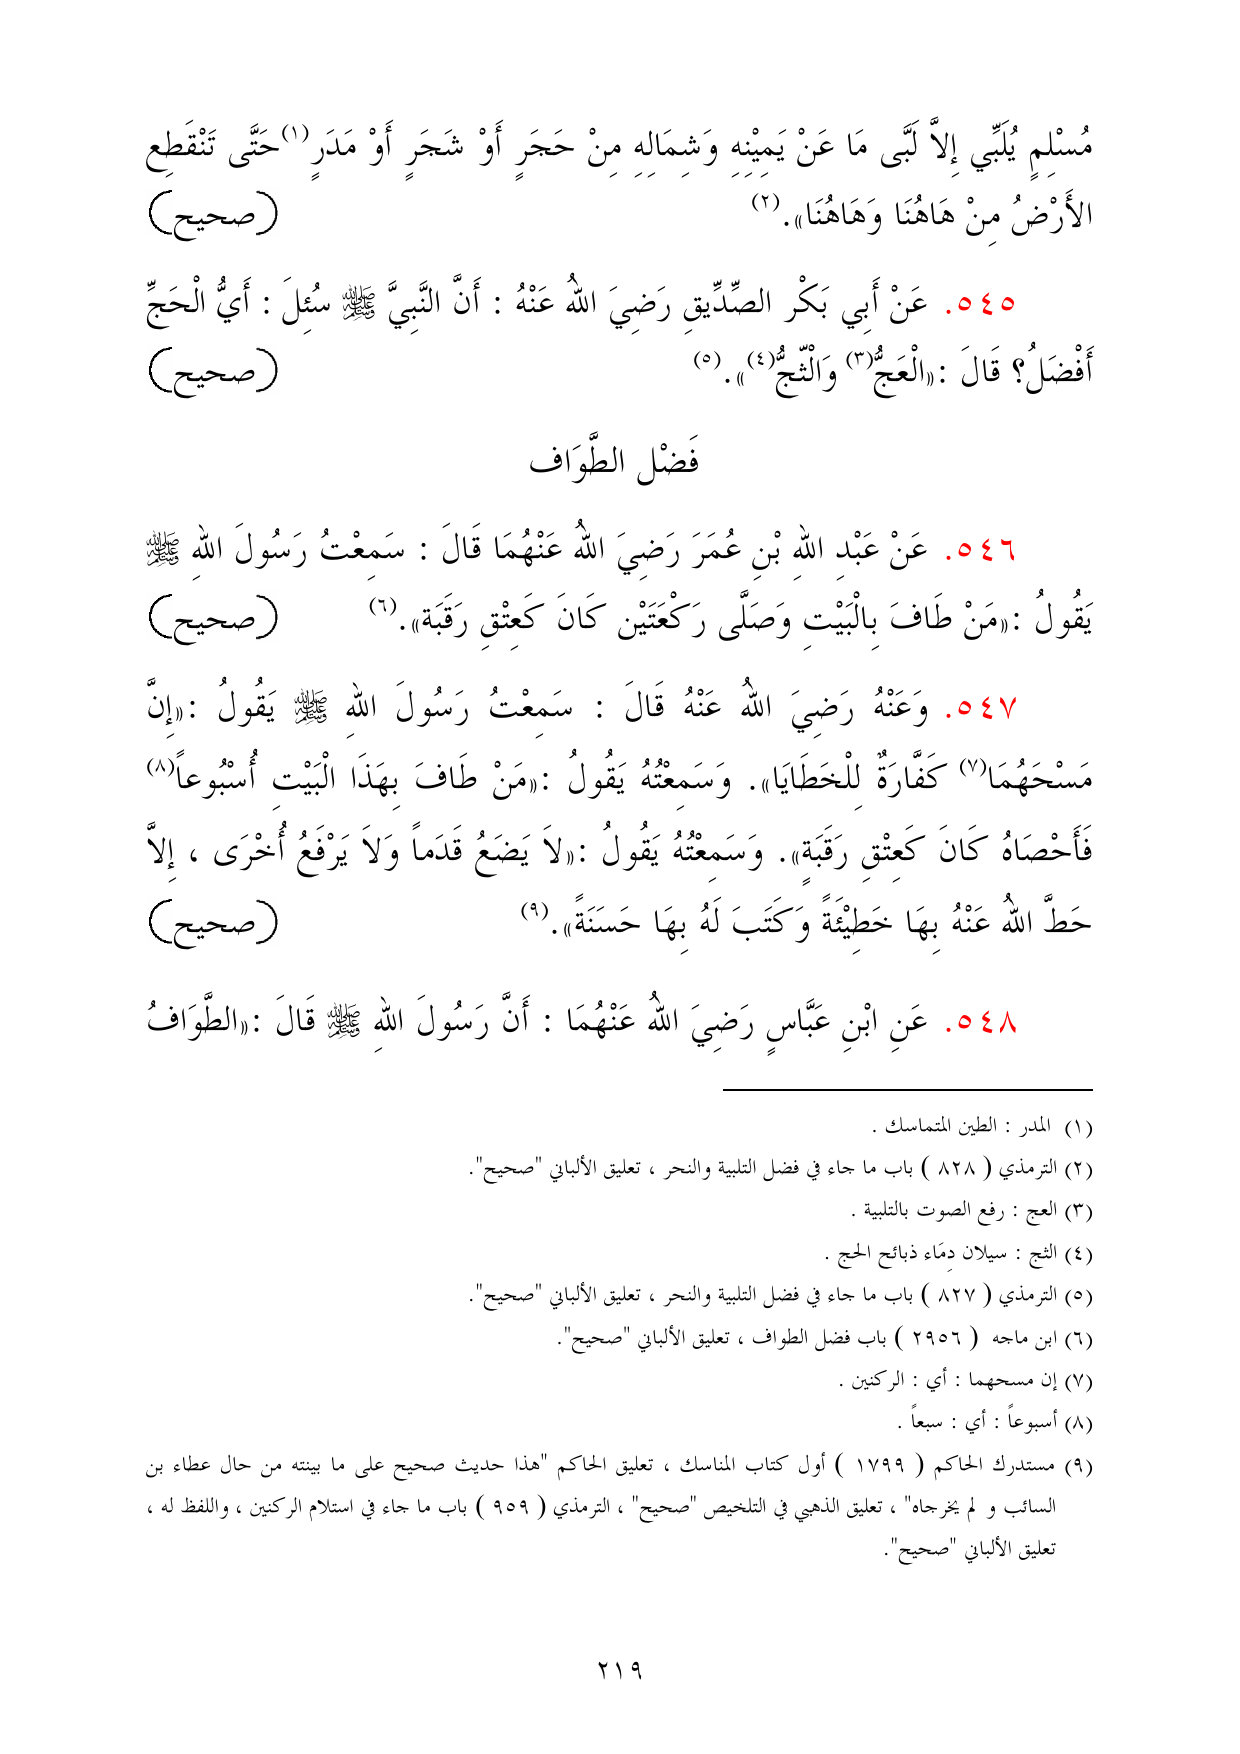 مُسْلِمٍ يُلَبِّي إِلاَّ لَبَّى مَا عَنْ يَمِيْنِهِ وَشِمَالِهِ مِنْ حَجَرٍ أَوْ شَجَرٍ أَوْ مَدَرٍ(١)حَتَّى تَنْقَطِع
الأَرْضُ مِنْ هَاهُنَا وَهَاهُنَا».(٢) (صحيح)
٥٤٥. عَنْ أَبِي بَكْر الصِّدِّيقِ رَضِيَ اللهُ عَنْهُ : أَنَّ النَّبِيَّ ﷺ سُئِلَ : أَيُّ الْحَجِّ
أَفْضَلُ؟ قَالَ :«الْعَجُّ(٣) وَالْثّجُّ(٤)».(٥) (صحيح)
فَضْل الطَّوَاف
٥٤٦. عَنْ عَبْدِ اللهِ بْنِ عُمَرَ رَضِيَ اللهُ عَنْهُمَا قَالَ : سَمِعْتُ رَسُولَ اللهِ ﷺ
يَقُولُ :«مَنْ طَافَ بِالْبَيْتِ وَصَلَّى رَكْعَتَيْنِ كَانَ كَعِتْقِ رَقَبَة».(٦) (صحيح)
٥٤٧. وَعَنْهُ رَضِيَ اللهُ عَنْهُ قَالَ : سَمِعْتُ رَسُولَ اللهِ ﷺ يَقُولُ :«إِنَّ
مَسْحَهُمَا(٧) كَفَّارَةٌ لِلْخَطَايَا». وَسَمِعْتُهُ يَقُولُ :«مَنْ طَافَ بِهَذَا الْبَيْتِ أُسْبُوعاً(٨)
فَأَحْصَاهُ كَانَ كَعِتْقِ رَقَبَةٍ». وَسَمِعْتُهُ يَقُولُ :«لاَ يَضَعُ قَدَماً وَلاَ يَرْفَعُ أُخْرَى ، إِلاَّ
حَطَّ اللهُ عَنْهُ بِهَا خَطِيْئَةً وَكَتَبَ لَهُ بِهَا حَسَنَةً».(٩) (صحيح)
٥٤٨. عَنِ ابْنِ عَبَّاسٍ رَضِيَ اللهُ عَنْهُمَا : أَنَّ رَسُولَ اللهِ ﷺ قَالَ :«الطَّوَافُ
(١) المدر : الطين المتماسك .
(٢) الترمذي ( ٨٢٨ ) باب ما جاء في فضل التلبية والنحر ، تعليق الألباني "صحيح".
(٣) العج : رفع الصوت بالتلبية .
(٤) الثج : سيلان دِمَاء ذبائح الحج .
(٥) الترمذي ( ٨٢٧ ) باب ما جاء في فضل التلبية والنحر ، تعليق الألباني "صحيح".
(٦) ابن ماجه ( ٢٩٥٦ ) باب فضل الطواف ، تعليق الألباني "صحيح".
(٧) إن مسحهما : أي : الركنين .
(٨) أسبوعاً : أي : سبعاً .
(٩) مستدرك الحاكم ( ١٧٩٩ ) أول كتاب المناسك ، تعليق الحاكم "هذا حديث صحيح على ما بينته من حال عطاء بن
السائب و لم يخرجاه" ، تعليق الذهبي في التلخيص "صحيح" ، الترمذي ( ٩٥٩ ) باب ما جاء في استلام الركنين ، واللفظ له ،
تعليق الألباني "صحيح".
٢١٩